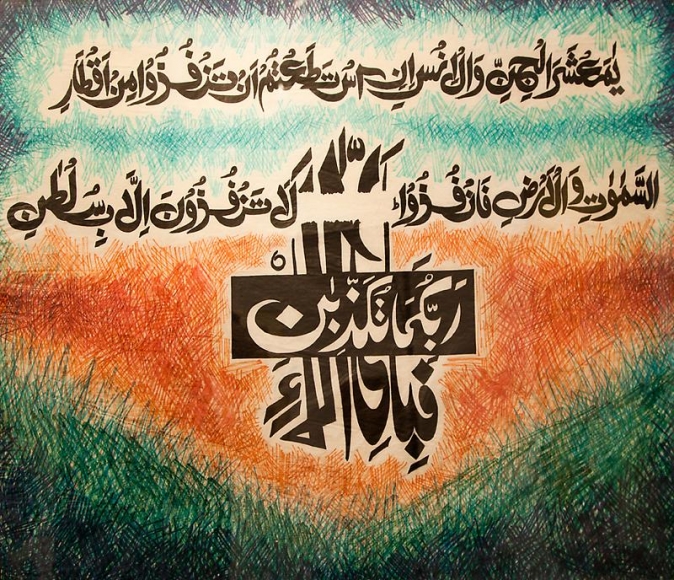 يٰمَعْشَرَ الْجِنِّ وَالْاِنْسِ اِنِ اسْتَطَعْتُمْ اَنْ تَنْفُذُوْا مِنْ اَقْطَارِ
السَّمٰوٰتِ وَالْاَرْضِ فَانْفُذُوْا لَا تَنْفُذُوْنَ اِلَّا بِسُلْطٰنٍ
فَبِاَيِّ اٰلَآءِ
رَبِّكُمَا تُكَذِّبٰنِ